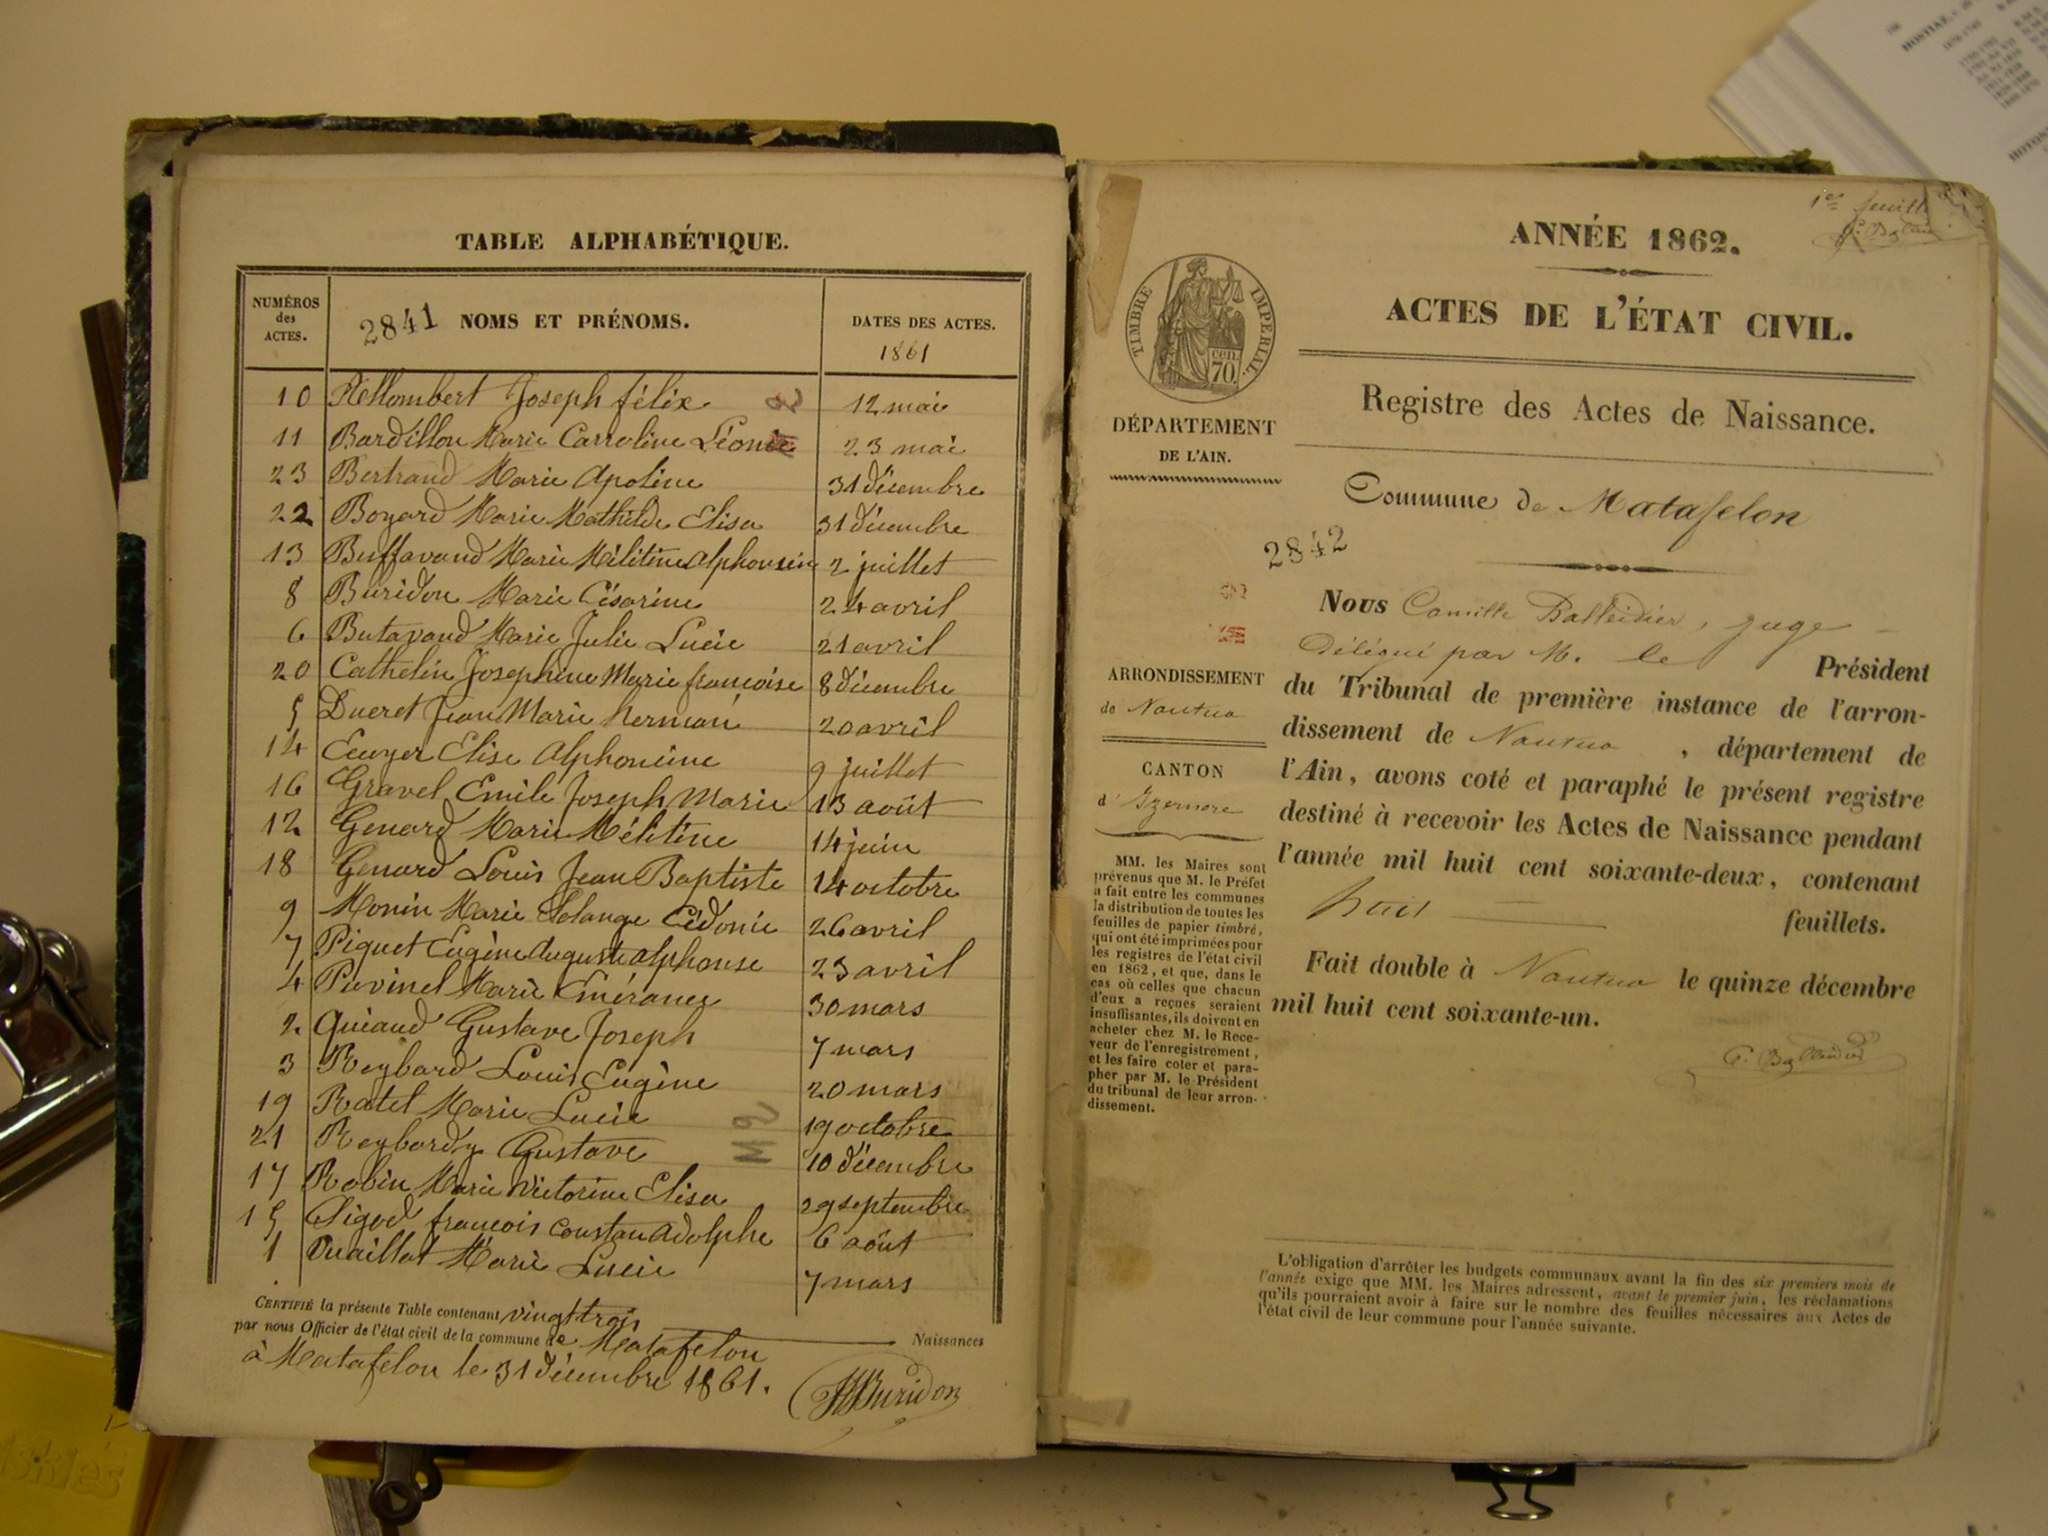 TABLE ALPHABÉTIQUE.
NUMÉROS des ACTES.
2841 NOMS ET PRÉNOMS.
DATES DES ACTES.
1861
10 Joseph félix 12 mai
11 Bardillon Marie Carroline Léonie 23 mai
23 Bertrand Marie Apoline 31 décembre
22 Boyard Marie Mathilde Elisa 31 décembre
13 Buffavand Marie Mélitine alphonsin 2 juillet
8 Buridon Marie Césarine 24 avril
6 Butavand Marie Julie Lucie 21 avril
20 Cathelin Josephine Marie francoise 8 décembre
5 Ducret Jean Marie 20 avril
14 Ecuyer Elise alphonsine 9 juillet
16 Gravel Emile Joseph Marie 13 août
12 Genard Marie Mélitine 14 juin
18 Genard Louis Jean Baptiste 14 octobre
9 Monin Marie Solange Cédonie 26 avril
7 Piquet Eugène Auguste alphonse 23 avril
4 Marie 30 mars
2 Gustave Joseph 7 mars
3 Reybard Louis Eugène 20 mars
19 Ratel Marie Lucie 19 octobre
21 Reybard Gustave 10 décembre
17 Robin Marie Victorine Elisa 29 septembre
15 françois constan adolphe 6 août
1 Marie Lucie 7 mars
CERTIFIÉ la présente Table contenant vingt trois Naissances
par nous Officier de l'état civil de la commune de Matafelon
à Matafelon le 31 décembre 1861.
Buridon
1er feuille
ANNÉE 1862.
ACTES DE L'ÉTAT CIVIL.
Registre des Actes de Naissance.
TIMBRE IMPERIAL
cen.
70.
DÉPARTEMENT
DE L'AIN.
Commune de Matafelon
2842
ARRONDISSEMENT
de Nantua
CANTON
d'Izernore
MM. les Maires sont
prévenus que M. le Préfet
a fait entre les communes
la distribution de toutes les
feuilles de papier timbré,
qui ont été imprimées pour
les registres de l'état civil
en 1862, et que, dans le
cas où celles que chacun
d'eux a reçues seraient
insuffisantes, ils doivent en
acheter chez M. le Rece-
veur de l'enregistrement,
et les faire coter et para-
pher par M. le Président
du tribunal de leur arron-
dissement.
Nous Camille Balleidier, juge
Délégué par M. le Président
du Tribunal de première instance de l'arron-
dissement de Nantua, département de
l'Ain, avons coté et paraphé le présent registre
destiné à recevoir les Actes de Naissance pendant
l'année mil huit cent soixante-deux, contenant
huit feuillets.
Fait double à Nantua le quinze décembre
mil huit cent soixante-un.
L'obligation d'arrêter les budgets communaux avant la fin des six premiers mois de
l'année exige que MM. les Maires adressent, avant le premier juin, les réclamations
qu'ils pourraient avoir à faire sur le nombre des feuilles nécessaires aux Actes de
l'état civil de leur commune pour l'année suivante.